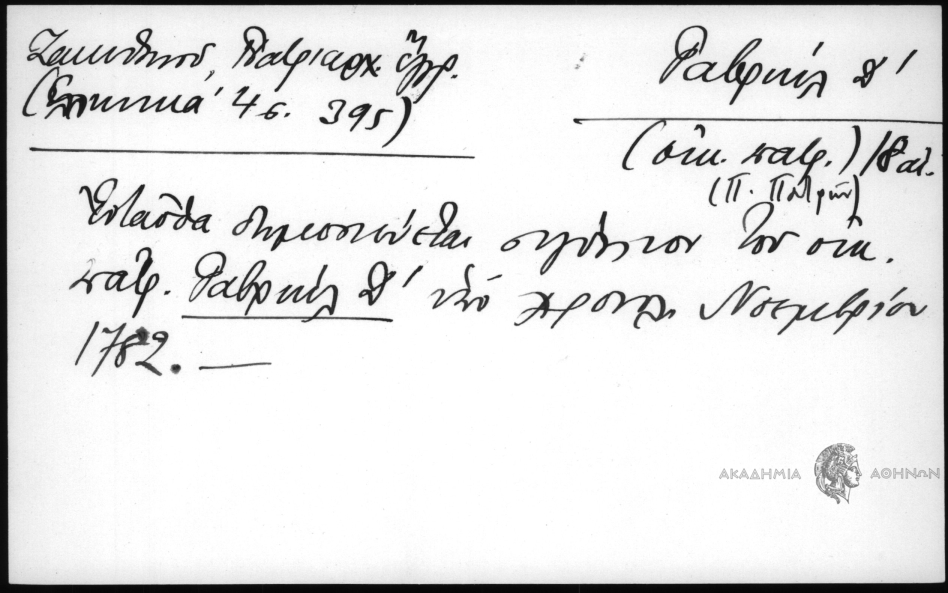 Ζακυθηνοῦ, Πατριαρχ. ἔγγρ.
(Ἑλληνικά 4 σ. 395)
Γαβριήλ Δ'
(οἰκ. πατρ.) 18 αἰ.
(Π. Πατρῶν)
Ἐνταῦθα δημοσιεύεται σιγίλλιον τοῦ οἰκ.
πατρ. Γαβριήλ Δ' ὑπό χρονολ. Νοεμβρίου
1782. —
ΑΚΑΔΗΜΙΑ ΑΘΗΝΩΝ